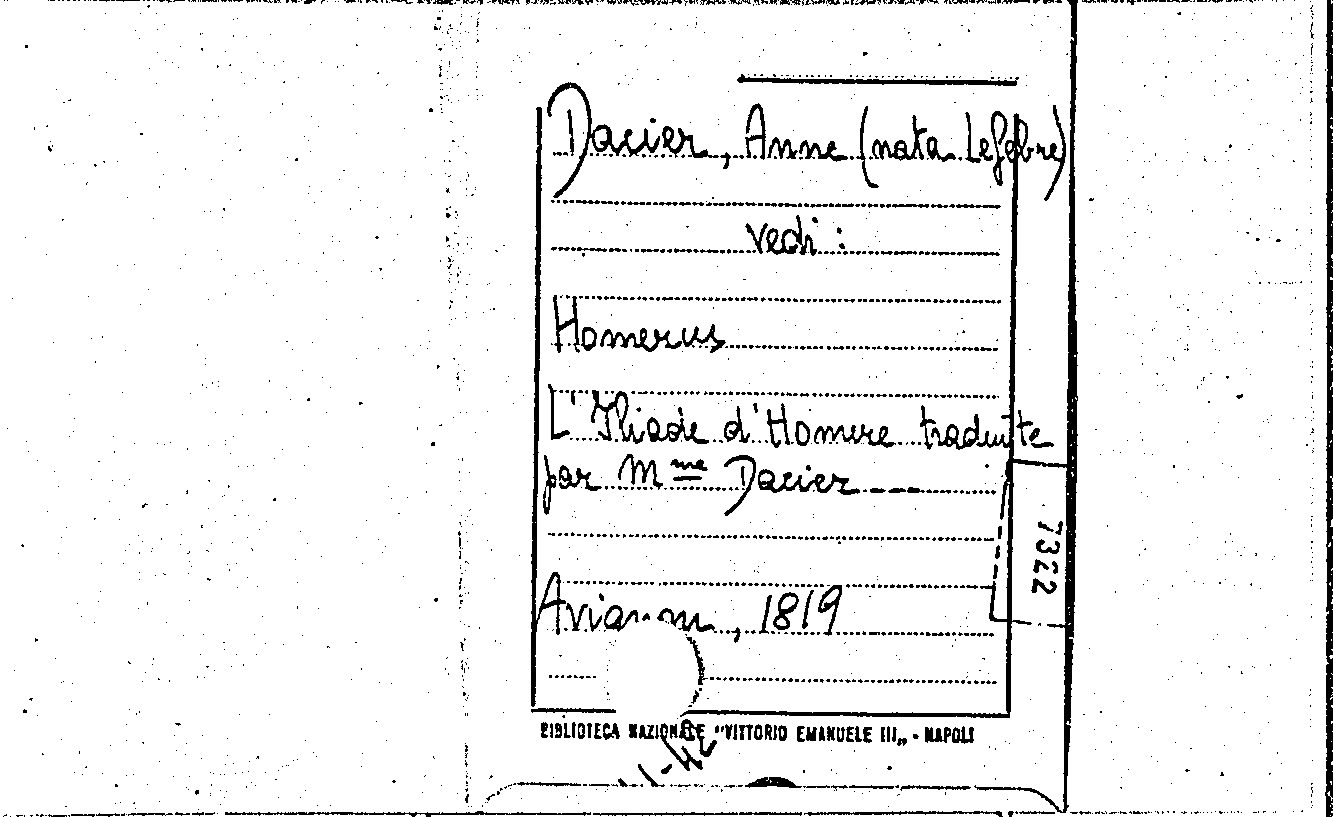 Dacier, Anne (nata Lefebre)
vedi :
Homerus
L'Iliade d'Homere traduite
par Mme Dacier ---
7322
Avignon, 1819
BIBLIOTECA NAZIONALE "VITTORIO EMANUELE III„ - NAPOLI